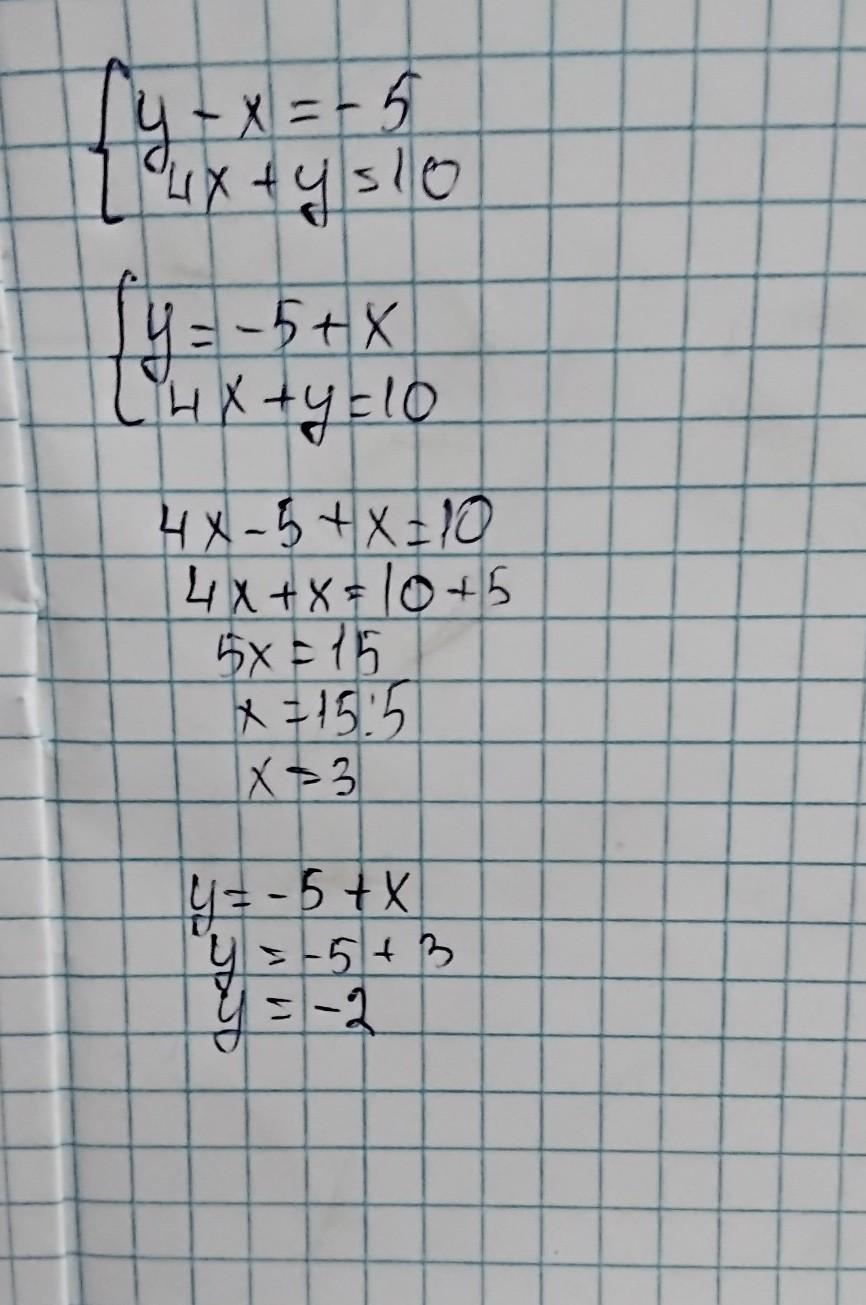 y - x = - 5
4x + y = 10
y = -5 + x
4x + y = 10
4x - 5 + x = 10
4x + x = 10 + 5
5x = 15
x = 15:5
x = 3
y = -5 + x
y = -5 + 3
y = -2